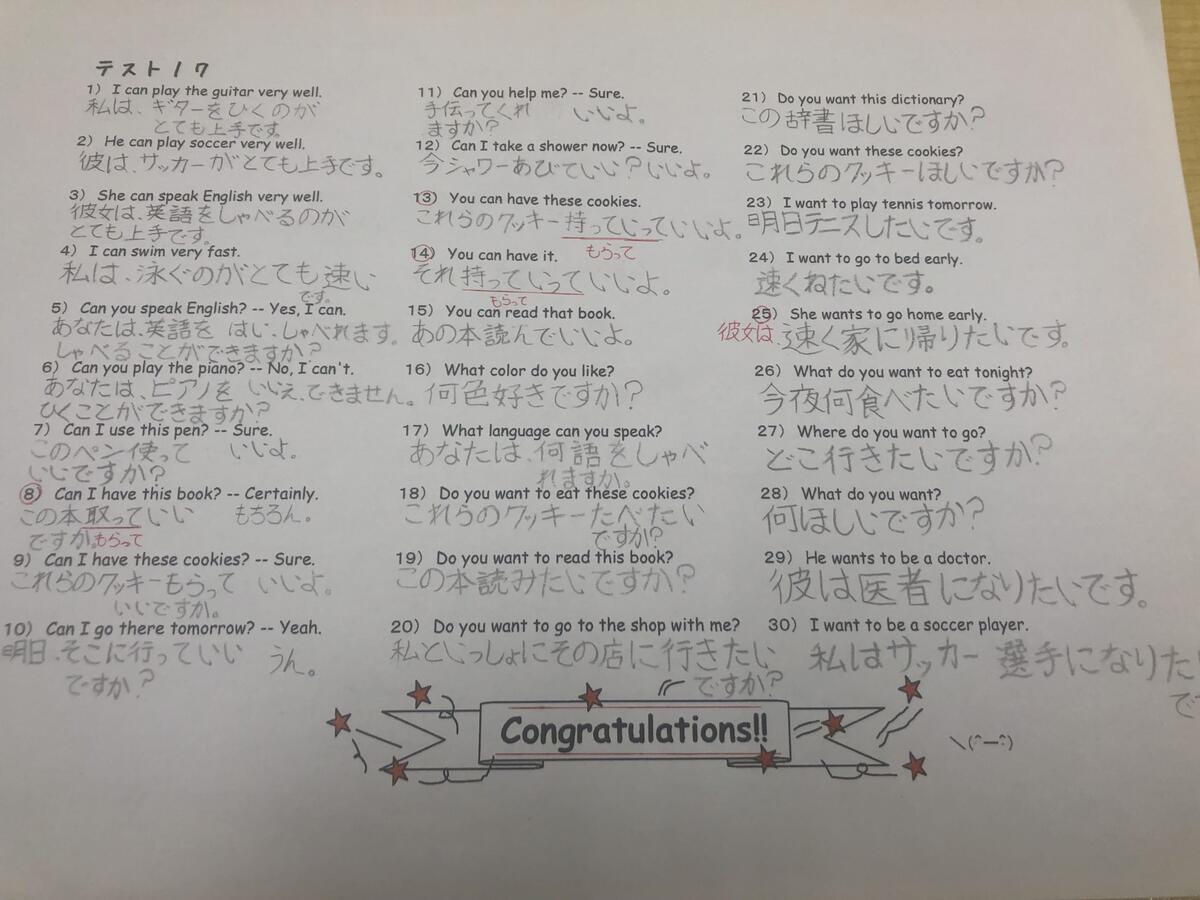 テスト17
1) I can play the guitar very well.
私は、ギターをひくのが
とても上手です。
2) He can play soccer very well.
彼は、サッカーがとても上手です。
3) She can speak English very well.
彼女は、英語をしゃべるのが
とても上手です。
4) I can swim very fast.
私は、泳ぐのがとても速い
です。
5) Can you speak English? -- Yes, I can.
あなたは、英語を はい、しゃべれます。
しゃべることができますか?
6) Can you play the piano? -- No, I can't.
あなたは、ピアノを いいえ、できません。
ひくことができますか?
7) Can I use this pen? -- Sure.
このペン使って いいよ。
いいですか?
8) Can I have this book? -- Certainly.
この本取っていい もちろん。
ですか。もらって
9) Can I have these cookies? -- Sure.
これらのクッキーもらって いいよ。
いいですか。
10) Can I go there tomorrow? -- Yeah.
明日、そこに行っていい うん。
ですか?
11) Can you help me? -- Sure.
手伝ってくれ いいよ。
ますか?
12) Can I take a shower now? -- Sure.
今シャワーあびていい?いいよ。
13) You can have these cookies.
これらのクッキー持っていっていいよ。
もらって
14) You can have it.
それ持っていっていいよ。
もらって
15) You can read that book.
あの本読んでいいよ。
16) What color do you like?
何色好きですか?
17) What language can you speak?
あなたは、何語をしゃべ
れますか。
18) Do you want to eat these cookies?
これらのクッキーたべたい
ですか?
19) Do you want to read this book?
この本読みたいですか?
20) Do you want to go to the shop with me?
私といっしょにその店に行きたい
ですか?
21) Do you want this dictionary?
この辞書ほしいですか?
22) Do you want these cookies?
これらのクッキーほしいですか?
23) I want to play tennis tomorrow.
明日テニスしたいです。
24) I want to go to bed early.
速くねたいです。
25) She wants to go home early.
彼女は、速く家に帰りたいです。
26) What do you want to eat tonight?
今夜何食べたいですか?
27) Where do you want to go?
どこ行きたいですか?
28) What do you want?
何ほしいですか?
29) He wants to be a doctor.
彼は医者になりたいです。
30) I want to be a soccer player.
私はサッカー選手になりたい
で
Congratulations!!
\(^ー^)